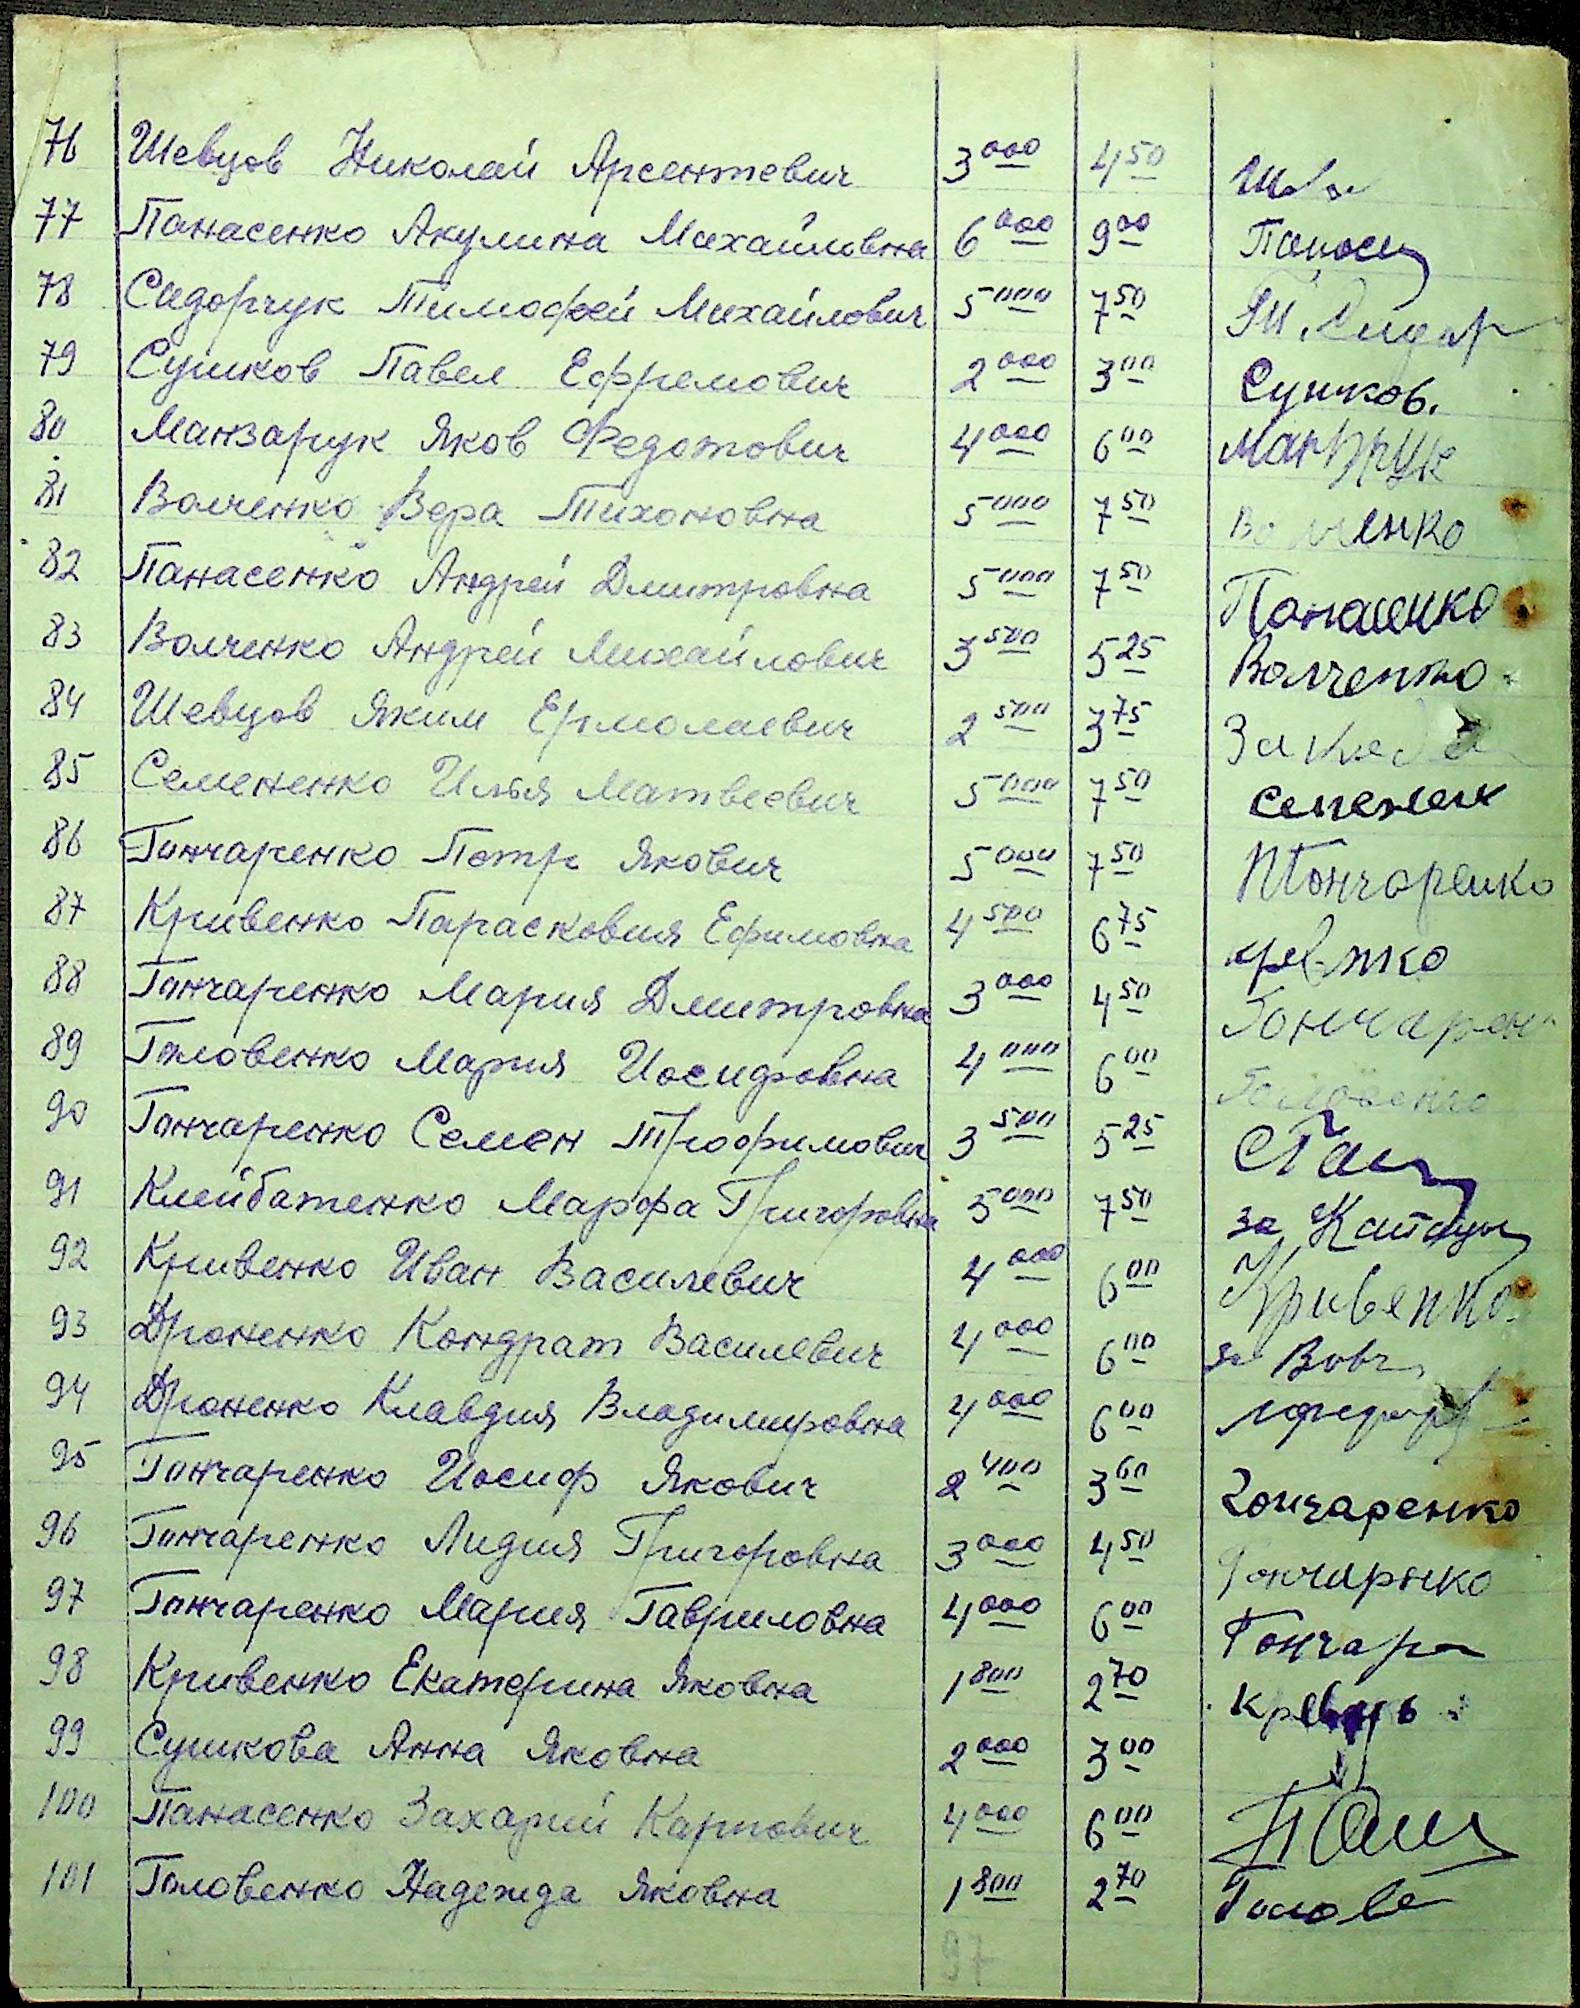 76 Шевцов Николай Арсентевич 3000 450
77 Панасенко Акулина Михайловна 6000 900 Панасен
78 Сидорчук Тимофей Михайлович 5000 750 Сидор
79 Сушков Павел Ефремович 2000 300 Сушков.
80 Манзарук Яков Федотович 4000 600 Манзрук
81 Волченко Вера Тихоновна 5000 750 Волченко
82 Панасенко Андрей Дмитровна 5000 750 Панасенко
83 Волченко Андрей Михайлович 3500 525 Волченко
84 Шевцов Яким Ермолаевич 2500 375
85 Семененко Илья Матвеевич 5000 750 семенен
86 Гончаренко Петр Якович 5000 750 ПГончаренко
87 Кривенко Парасковия Ефимовна 4500 675
88 Гончаренко Мария Дмитровна 3000 450 Гончарен
89 Головенко Мария Иосифовна 4000 600 Головенко
90 Гончаренко Семен Трофимович 3500 525
91 Клейбатенко Марфа Григоровна 5000 750 за
92 Кривенко Иван Василевич 4000 600 Кривенко
93 Дроненко Кондрат Василевич 4000 600
94 Дроненко Клавдия Владимировна 4000 600
95 Гончаренко Иосиф Якович 2400 360 Гончаренко
96 Гончаренко Лидия Григоровна 3000 450 Гончарнко
97 Гончаренко Мария Гавриловна 4000 600 Гончар
98 Кривенко Екатерина Яковна 1800 270
99 Сушкова Анна Яковна 2000 300
100 Панасенко Захарий Карпович 4000 600
101 Головенко Надежда Яковна 1800 270 Голове
97